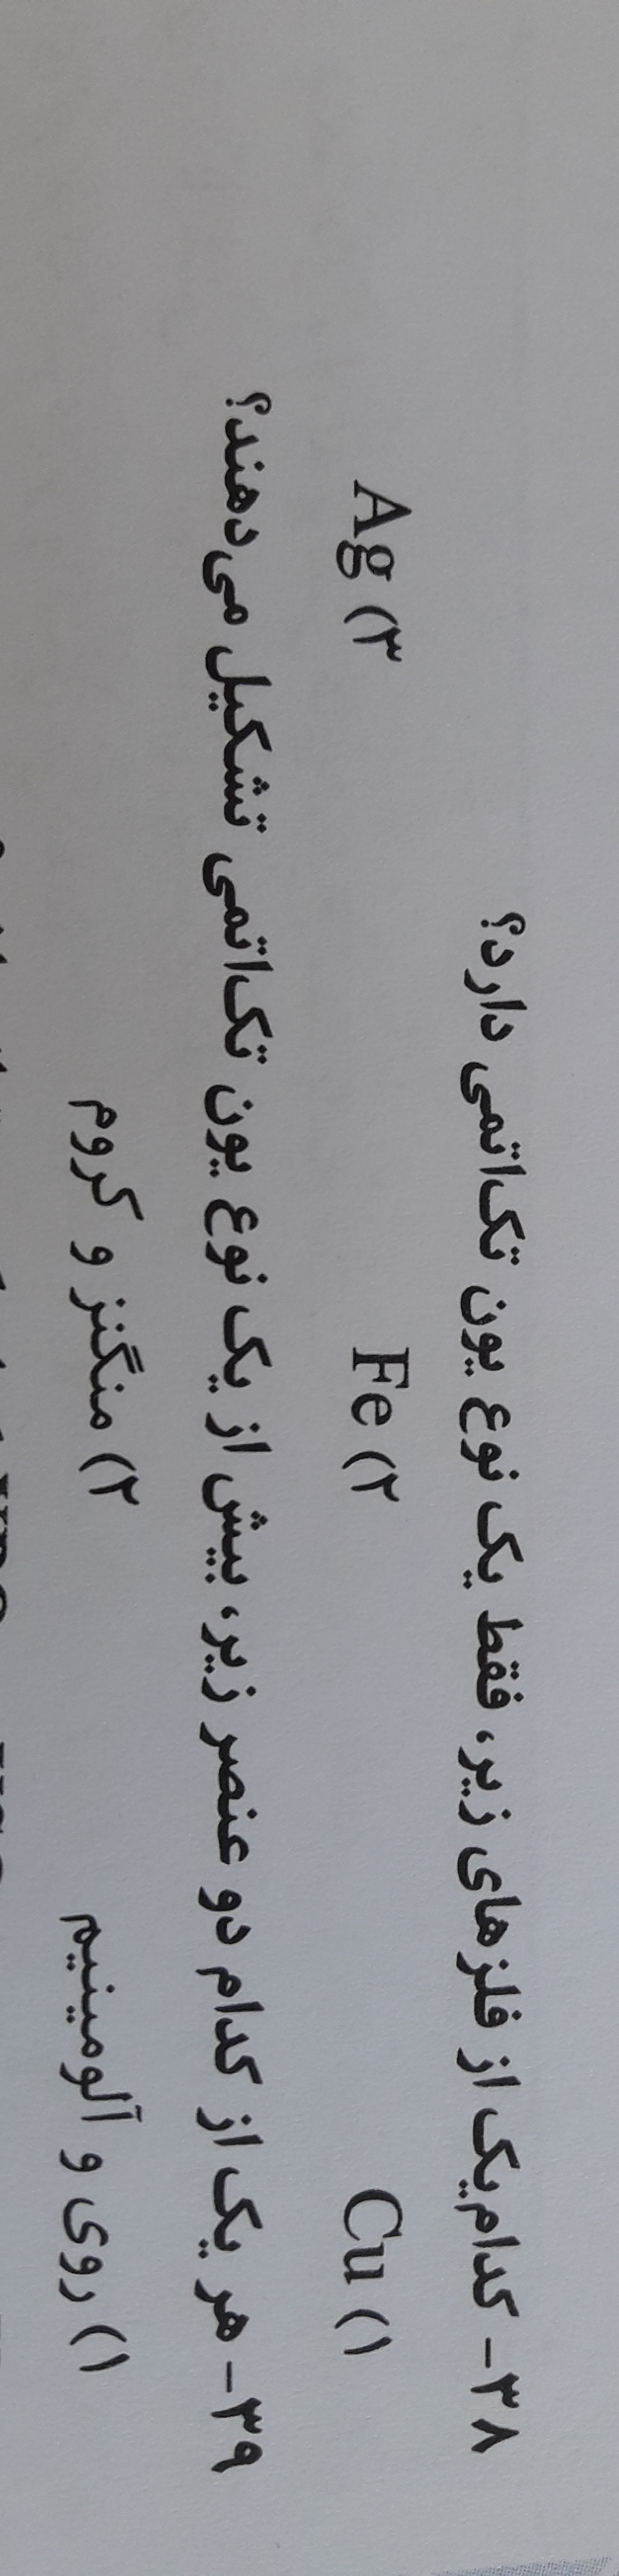 ۳۸- کدام‌یک از فلزهای زیر، فقط یک نوع یون تک‌اتمی دارد؟
۱) Cu ۲) Fe ۳) Ag
۳۹- هر یک از کدام دو عنصر زیر، بیش از یک نوع یون تک‌اتمی تشکیل می‌دهند؟
۱) روی و آلومینیم ۲) منگنز و کروم